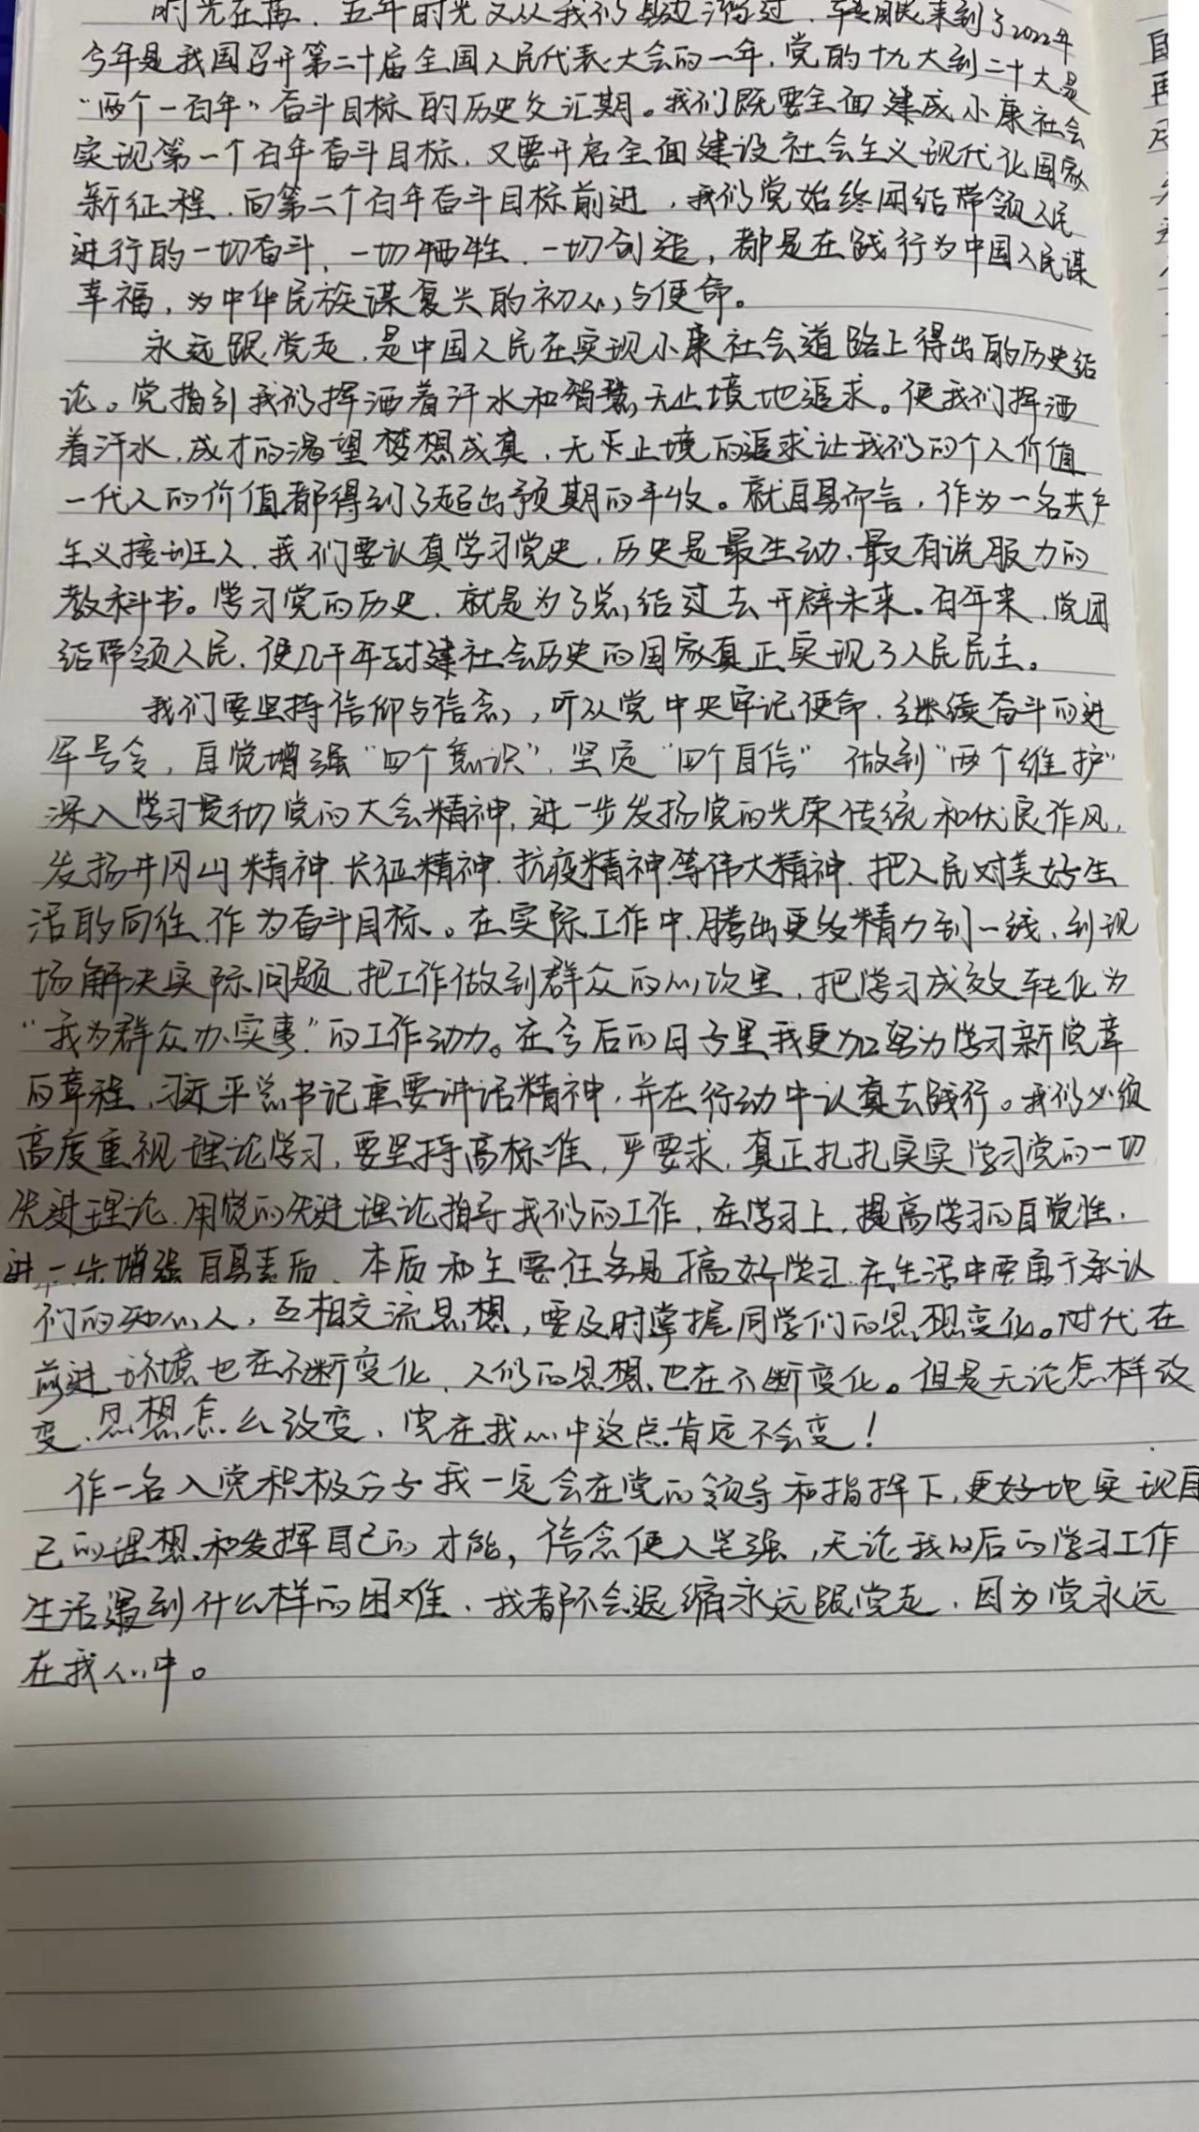 时光荏苒，五年时光又从我们身边溜过，转眼来到了2022年
今年是我国召开第二十届全国人民代表大会的一年，党的十九大到二十大是
“两个一百年”奋斗目标的历史交汇期。我们既要全面建成小康社会
实现第一个百年奋斗目标，又要开启全面建设社会主义现代化国家
新征程，向第二个百年奋斗目标前进，我们党始终团结带领人民
进行的一切奋斗、一切牺牲、一切创造，都是在践行为中国人民谋
幸福，为中华民族谋复兴的初心与使命。
永远跟党走，是中国人民在实现小康社会道路上得出的历史结
论。党指引我们挥洒着汗水和智慧，无止境地追求。使我们挥洒
着汗水，成才的渴望梦想成真，无止境的追求让我们的个人价值
一代人的价值都得到了超出预期的丰收。就自身而言，作为一名共产
主义接班人，我们要认真学习党史，历史是最生动、最有说服力的
教科书。学习党的历史，就是为了总结过去开辟未来。百年来，党团
结带领人民，使几千年封建社会历史的国家真正实现了人民民主。
我们要坚持信仰与信念，听从党中央牢记使命，继续奋斗的进
军号令，自觉增强“四个意识”，坚定“四个自信”做到“两个维护”
深入学习贯彻党的大会精神，进一步发扬党的光荣传统和优良作风，
发扬井冈山精神、长征精神、抗疫精神等伟大精神，把人民对美好生
活的向往，作为奋斗目标。在实际工作中，腾出更多精力到一线、到现
场解决实际问题，把工作做到群众的心坎里，把学习成效转化为
“我为群众办实事”的工作动力。在今后的日子里我更加努力学习新党章
的章程，习近平总书记重要讲话精神，并在行动中认真去践行。我们必须
高度重视理论学习，要坚持高标准，严要求，真正扎扎实实学习党的一切
先进理论，用党的先进理论指导我们的工作，在学习上，提高学习的自觉性，
进一步增强自身素质，本质和主要任务是搞好学习，在生活中要勇于承认
们的知心人，互相交流思想，要及时掌握同学们的思想变化。时代在
前进，环境也在不断变化，人们的思想也在不断变化。但是无论怎样改
变，思想怎么改变，党在我心中这点肯定不会变！
作一名入党积极分子我一定会在党的领导和指挥下，更好地实现自
己的理想和发挥自己的才能，信念使人坚强，无论我以后的学习工作
生活遇到什么样的困难，我都不会退缩永远跟党走，因为党永远
在我心中。